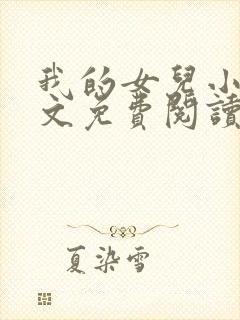 我的女兒小
文免費閱讀
夏染雪